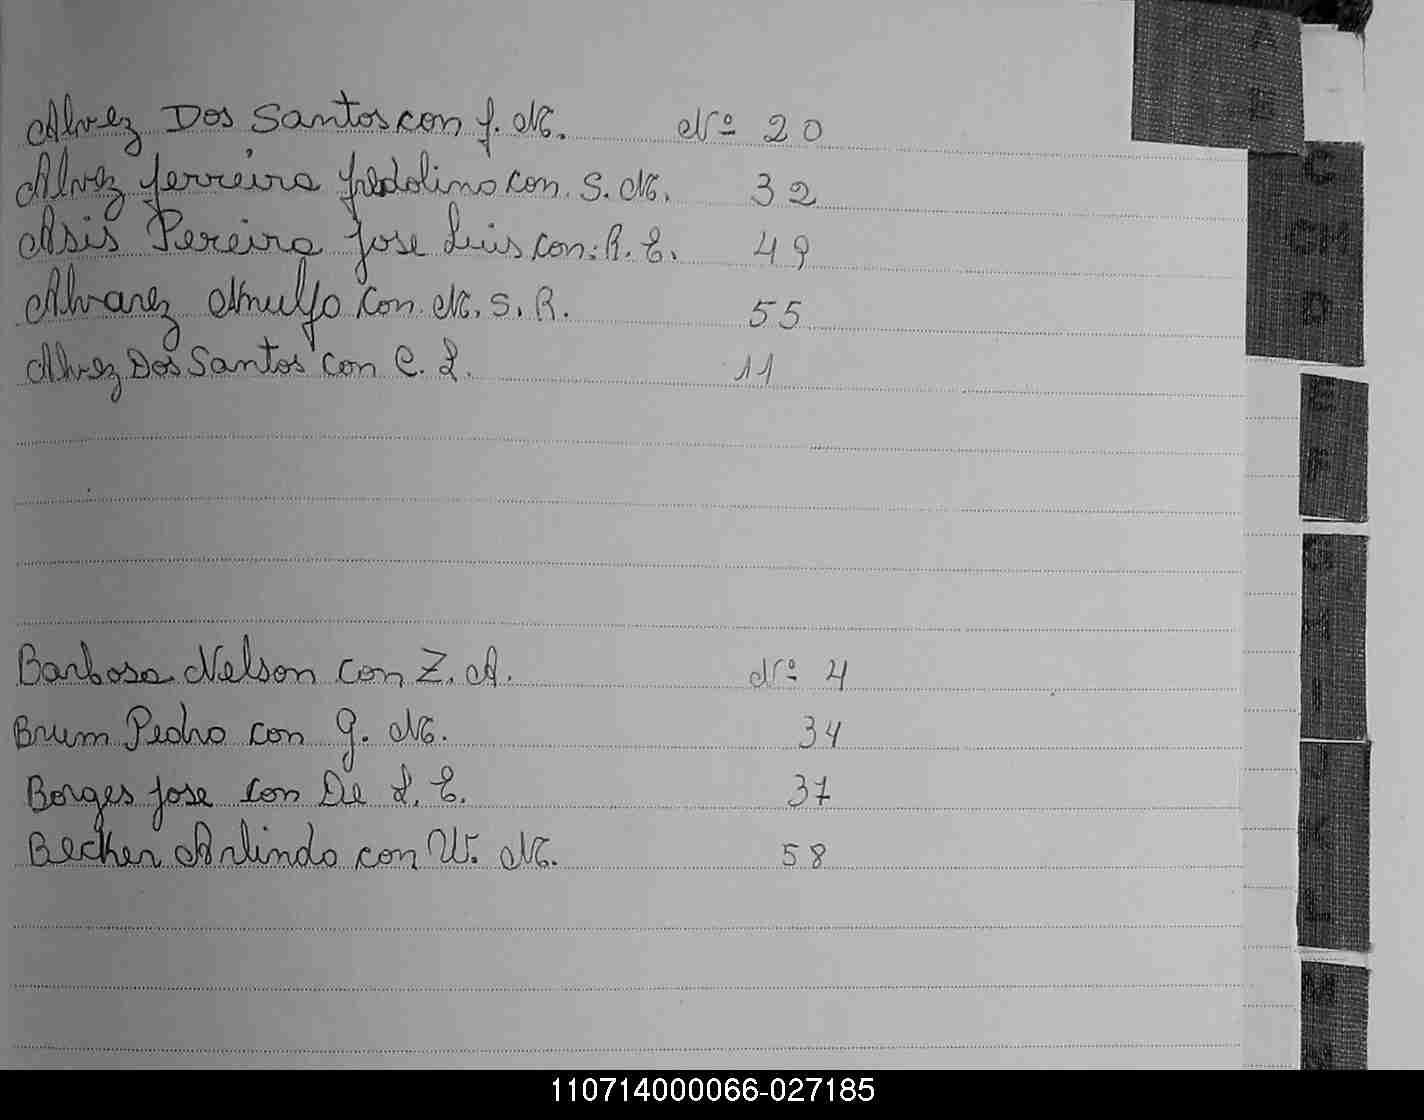 A
B
Alvez Dos Santos con J. M. Nº 20
Alvez ferreira fredolino con. S. M. 32
Asis Pereira Jose Luis con: R. E. 49
Alvarez Arnulfo con M. S. R. 55
Alvez Dos Santos con C. L. 11
Barbosa Nelson con Z. A. Nº 4
Brum Pedro con G. M. 34
Borges Jose con De L. E. 37
Becker Arlindo con W. M. 58
C
CH
D
E
F
G
H
I
J
K
L
M
110714000066-027185